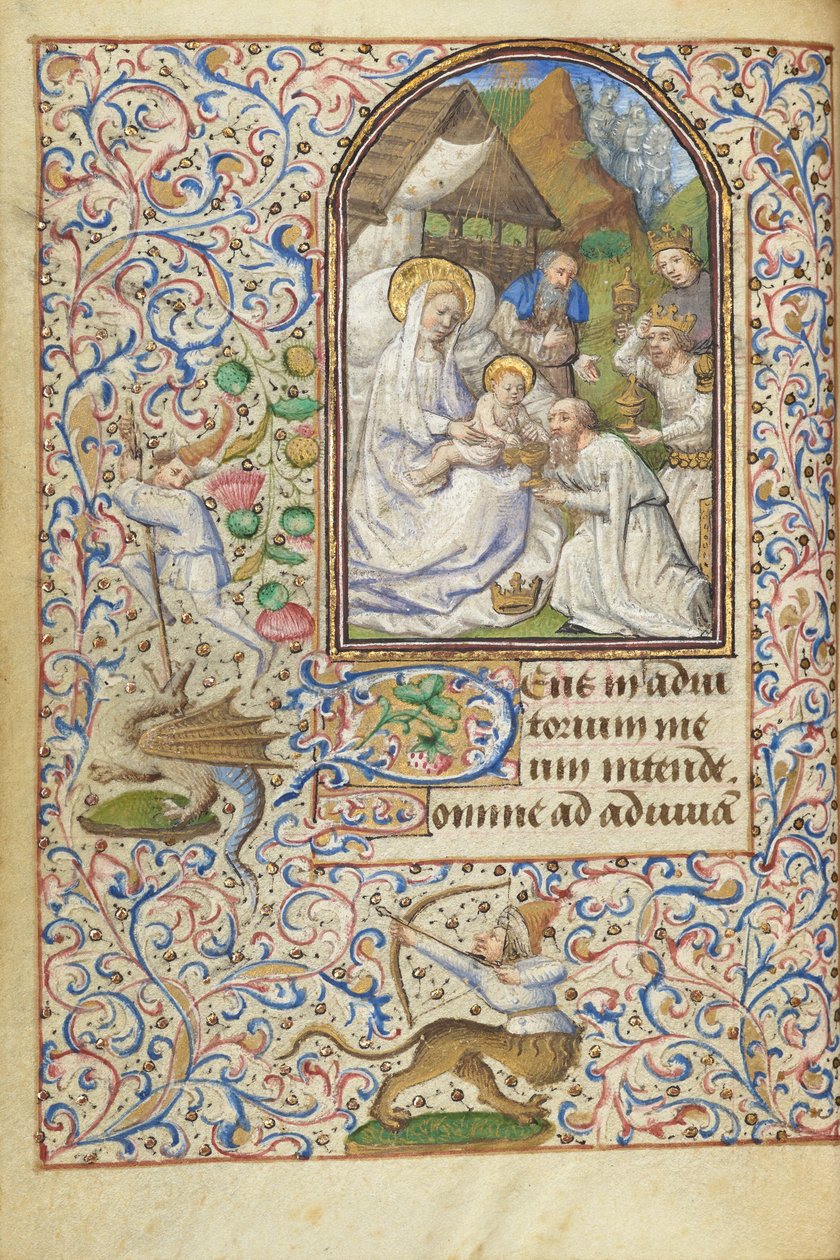 Deus in adiu
torium me
um intende.
Domine ad adiuuā